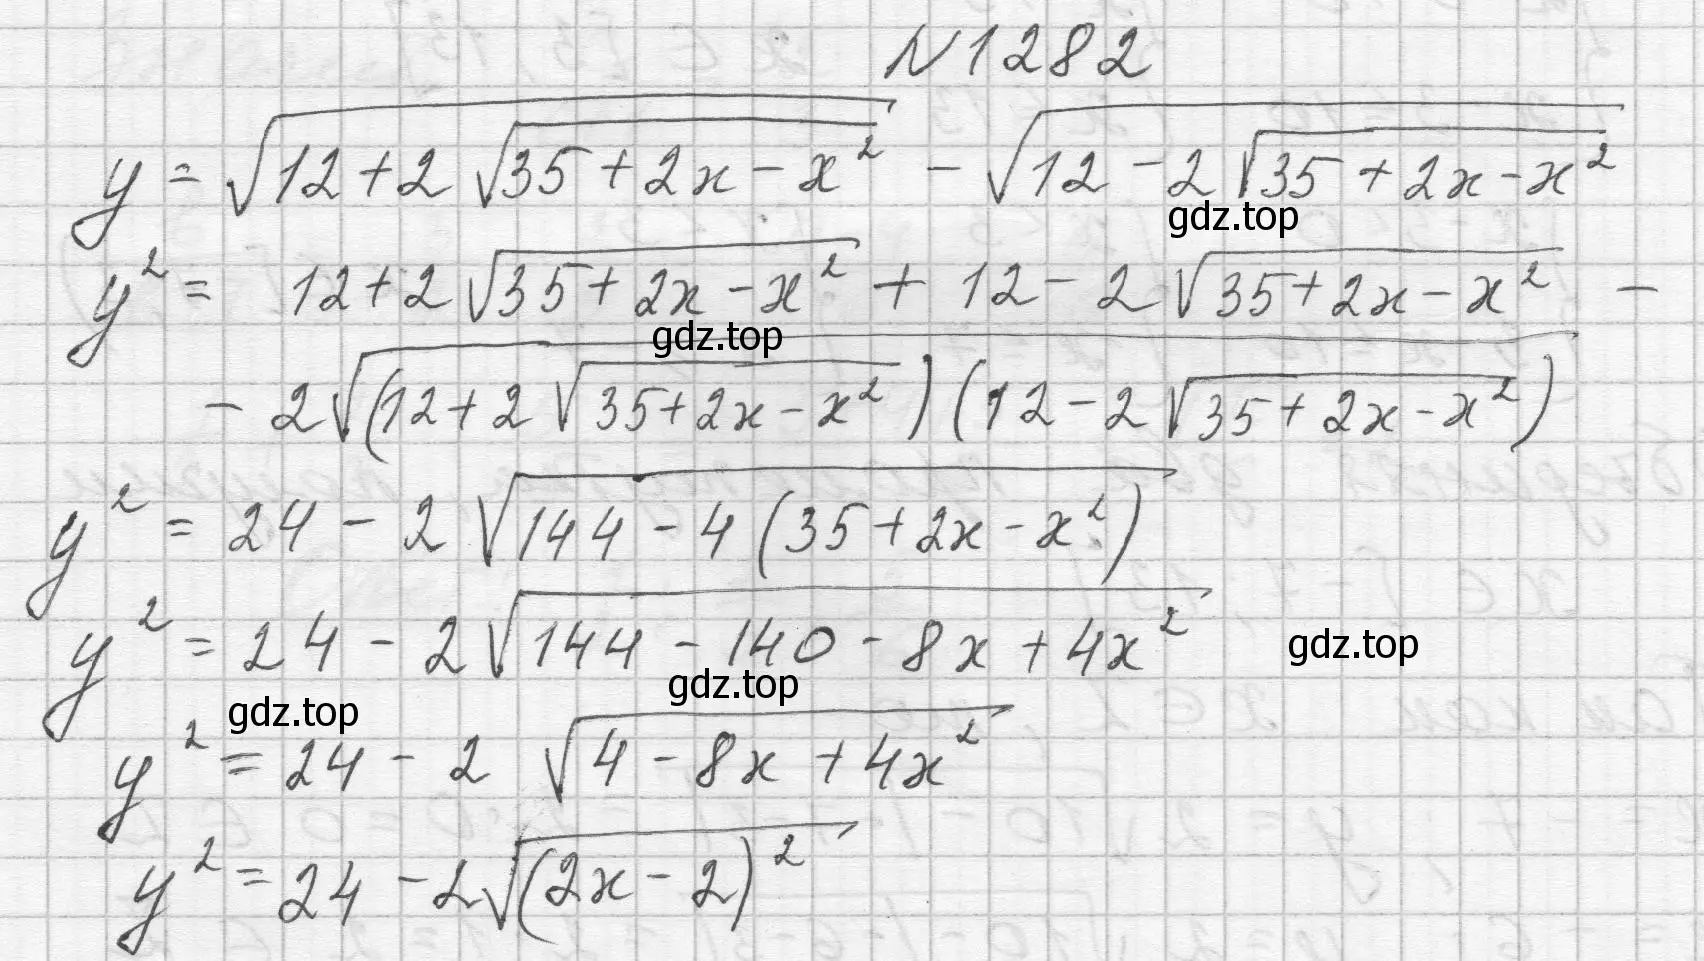 N1282
y = √(12+2√(35+2x-x²)) - √(12-2√(35+2x-x²))
gdz.top
y² = 12+2√(35+2x-x²) + 12-2√(35+2x-x²) -
gdz.top
- 2√((12+2√(35+2x-x²))(12-2√(35+2x-x²)))
y² = 24 - 2√(144-4(35+2x-x²))
y² = 24 - 2√(144-140-8x+4x²)
gdz.top
gdz.top
gdz.top
y² = 24 - 2√(4-8x+4x²)
y² = 24 - 2√((2x-2)²)